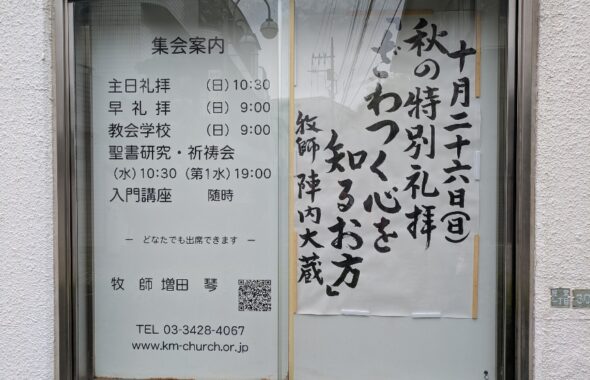 集会案内
主日礼拝 (日) 10:30
早礼拝 (日) 9:00
教会学校 (日) 9:00
聖書研究・祈祷会
(水) 10:30 (第1水) 19:00
入門講座 随時
― どなたでも出席できます ―
牧師 増田 琴
TEL 03-3428-4067
www.km-church.or.jp
十月二十六日(日)
秋の特別礼拝
「ざわつく心を
知るお方」
牧師 陣内大蔵
30